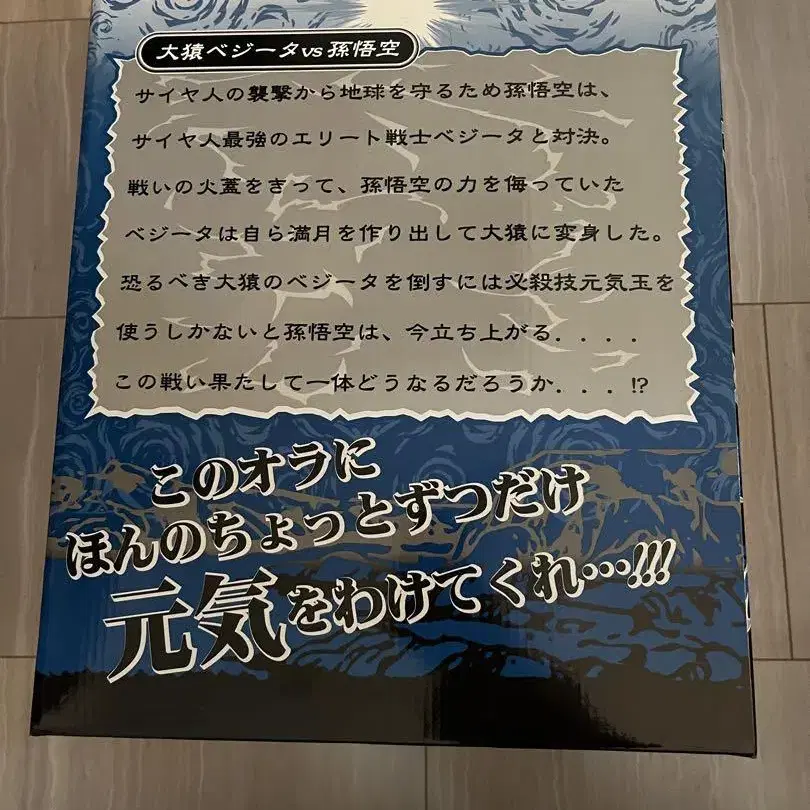 大猿ベジータvs孫悟空
サイヤ人の襲撃から地球を守るため孫悟空は、
サイヤ人最強のエリート戦士ベジータと対決。
戦いの火蓋をきって、孫悟空の力を侮っていた
ベジータは自ら満月を作り出して大猿に変身した。
恐るべき大猿のベジータを倒すには必殺技元気玉を
使うしかないと孫悟空は、今立ち上がる....
この戦い果たして一体どうなるだろうか...!?
このオラに
ほんのちょっとずつだけ
元気をわけてくれ…!!!